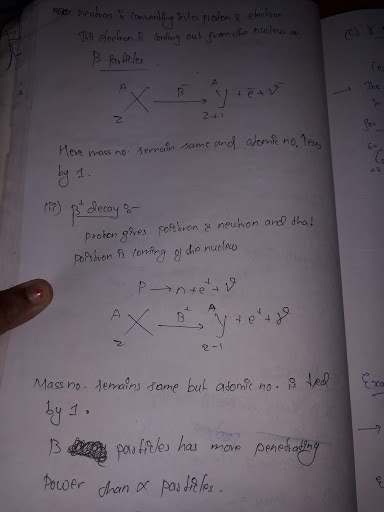 neutron is converting into proton & electron
this electron is coming out from the nucleus as
β particles.
A X Z —β⁻→ A Y Z+1 + e⁻ + ν⁻
Here mass no. remain same and atomic no. ↑ses
by 1.
(iii) β⁺ decay :-
proton gives positron & neutron and that
positron is coming of the nucleus
P → n + e⁺ + ν
A X Z —β⁺→ A Y Z-1 + e⁺ + ν
Mass no. remains same but atomic no. is ↓sed
by 1.
B particles has more penetrating
Power than α particles.